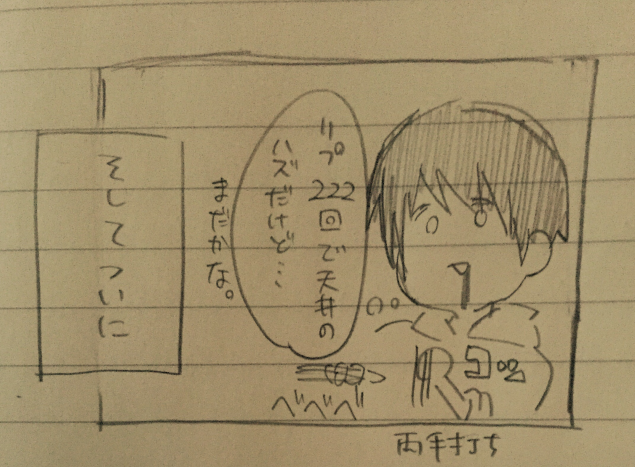 リプ222回で天井の
ハズだけど…
まだかな。
べべべ
両手打ち
そしてついに